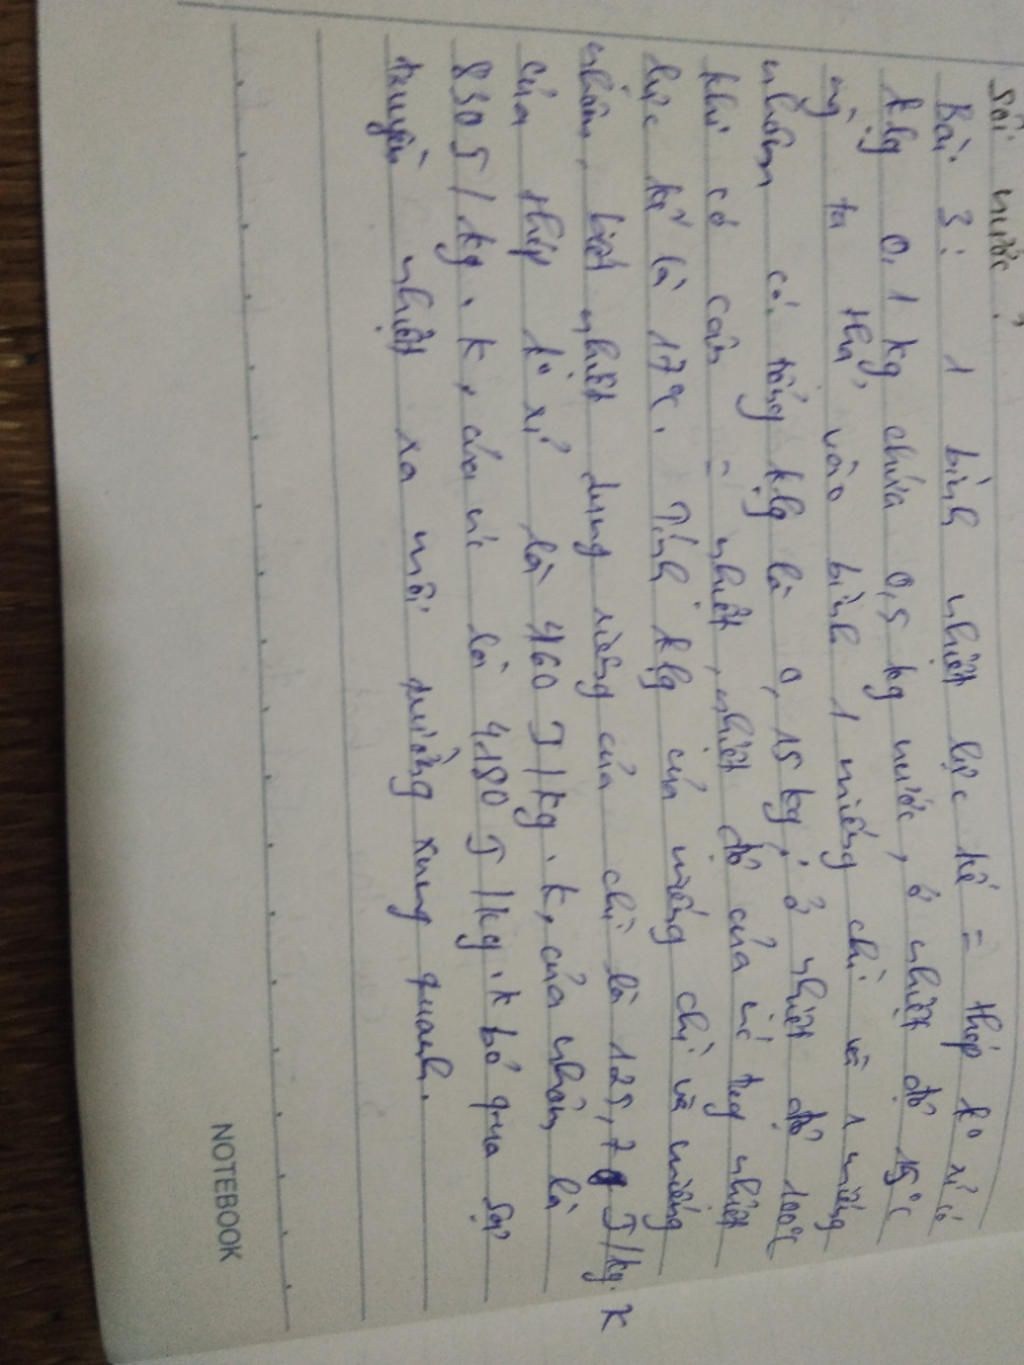 sôi nước.
Bài 3: 1 bình nhiệt lực kế = thép ko xỉ có
klg 0,1 kg chứa 0,5 kg nước, ở nhiệt độ 15°C
ng ta thả vào bình 1 miếng chì và 1 miếng
nhôm có tổng klg là 0,15 kg, ở nhiệt độ 100°C
khi có cân = nhiệt, nhiệt độ của nc tng nhiệt
lực kế là 17°C. Tính klg của miếng chì và miếng
nhôm, biết nhiệt dung riêng của chì là 125,7 J/kg.K
của thép ko xỉ là 460 J/kg.K, của nhôm là
830 J/kg.K, của nc là 4180 J/kg.K bỏ qua sự
truyền nhiệt ra môi trường xung quanh.
NOTEBOOK